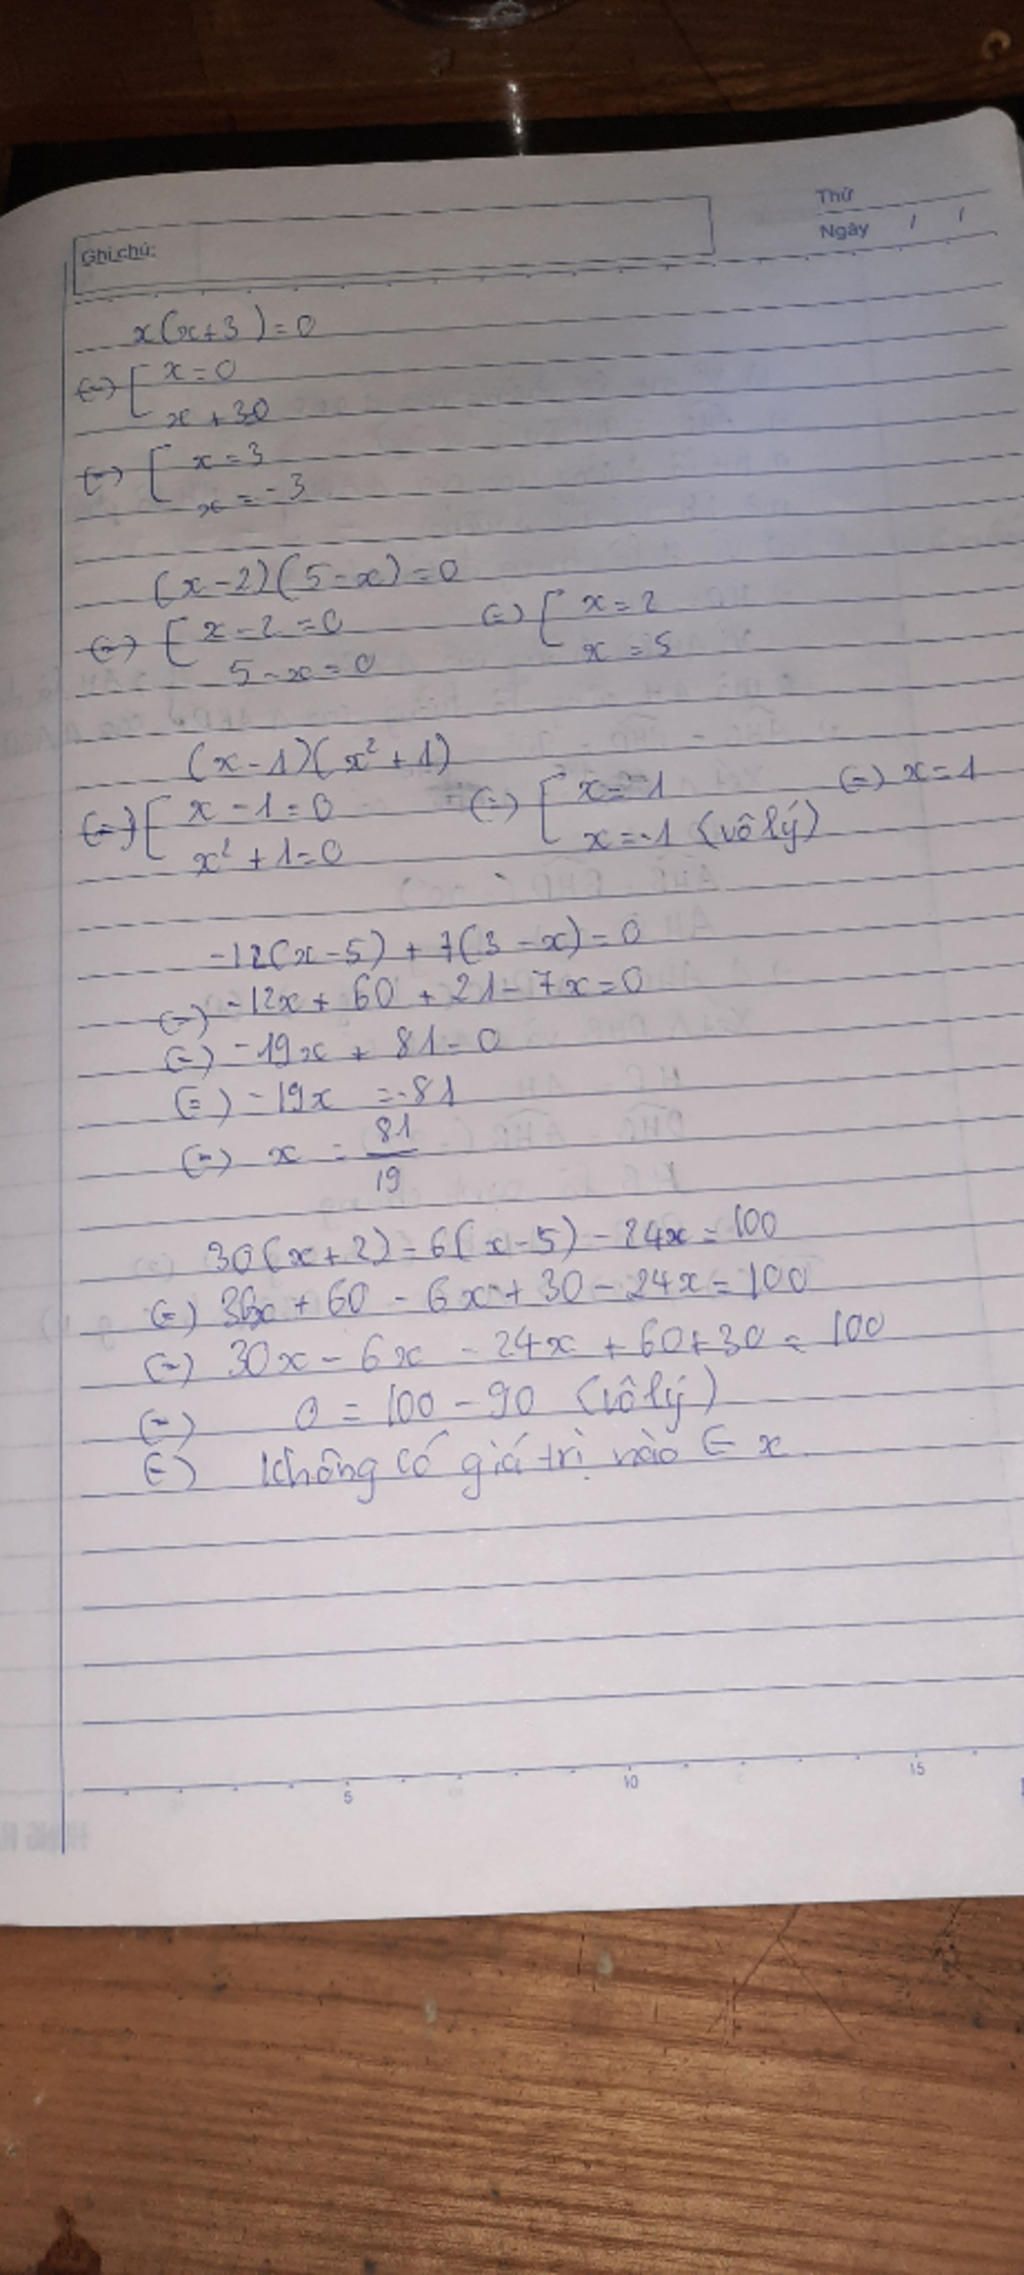 Ghi chú:
Thứ
Ngày / /
x(x+3)=0
(=) [ x=0
x+30
(=) [ x=3
x=-3
(x-2)(5-x)=0
(=) [ x-2=0 (=) [ x=2
5-x=0 x=5
(x-1)(x²+1)
(=) [ x-1=0 (=) [ x=1 (=) x=1
x²+1=0 x=-1 (vô lý)
-12(x-5)+7(3-x)=0
(=) -12x+60+21-7x=0
(=) -19x+81=0
(=) -19x=-81
(=) x=81/19
30(x+2)-6(x-5)-24x=100
(=) 30x+60-6x+30-24x=100
(=) 30x-6x-24x+60+30=100
(=) 0=100-90 (vô lý)
(=) Không có giá trị nào ∈ x
5 10 15